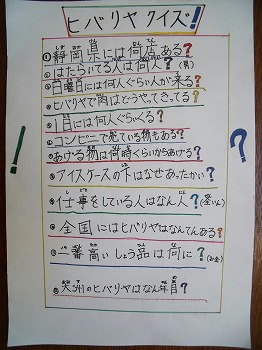 ヒバリヤクイズ!
①静岡県には何店ある?
②はたらいてる人は何人?(男)
③日曜日には何人ぐらい人が来る?
④ヒバリヤで肉はどうやってきってる?
⑤1日には何人ぐらいくる?
⑥コンビニーで売ている物もある?
⑦あげる物は何時くらいからあげる?
⑧アイスケースの下はなぜあったかい?
⑨仕事をしている人はなん人?
⑩全国にはヒバリヤはなんてんある?
⑪一番高いしょう品は何に?
⑫大洲のヒバリヤはなん年目?
!
?